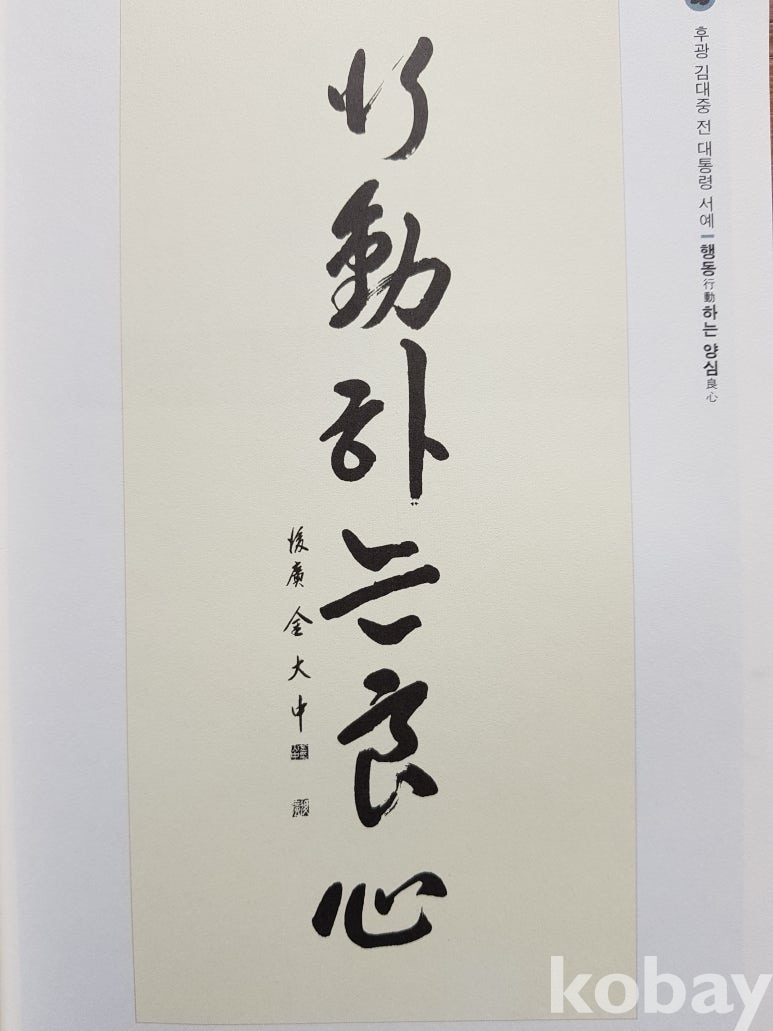 후광 김대중 전 대통령 서예 - 행동行動하는 양심良心
行動하는良心
後廣 金大中
kobay